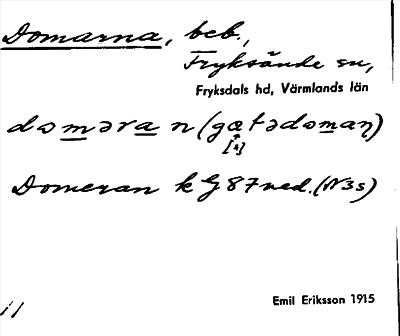 Domarna, beb.,
Fryksände sn,
Fryksdals hd, Värmlands län
doməra n (gatədomaη)
[⁠ɨ]
Domeran k G 87 ned. (N3s)
Emil Eriksson 1915